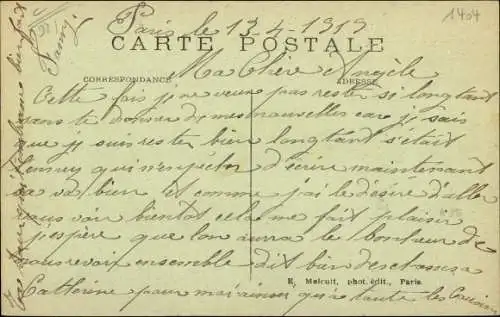 1404
Paris le 13-4-1919
CARTE POSTALE
CORRESPONDANCE
ADRESSE
Ma Chère Angèle
Cette fois je ne veux pas rester si longtant
sans te donner de mes nouvelles car je sais
que je suis rester bien longtant s'était
qui d'écrire maintenant
sa va bien et comme j'ai le désire d'aller
vous voir bientot cela me fait plaisir
j'espère que lon aurra le bonheur de
vous revoir ensemble dit bien des choses a
Catherine pour moi ainsi qu'a toute les
E. Malcuit, phot. édit., Paris.